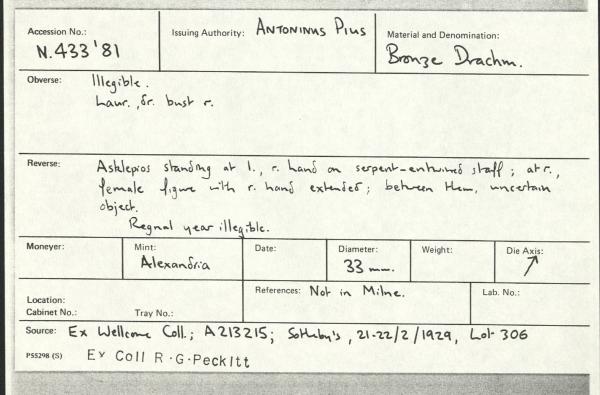 Accession No.: N.433'81
Issuing Authority: ANTONINUS PIUS
Material and Denomination: Bronze Drachm.
Obverse: Illegible.
Laur., dr. bust r.
Reverse: Asklepios standing at l., r. hand on serpent-entwined staff; at r.,
female figure with r. hand extended; between them, uncertain
object.
Regnal year illegible.
Moneyer:
Mint: Alexandria
Date:
Diameter: 33 mm.
Weight:
Die Axis: ↗
Location:
Cabinet No.: Tray No.:
References: Not in Milne.
Lab. No.:
Source: Ex Wellcome Coll.; A213215; Sotheby's, 21-22/2/1929, Lot 306
P55298 (S) Ex Coll R.G.Peckitt